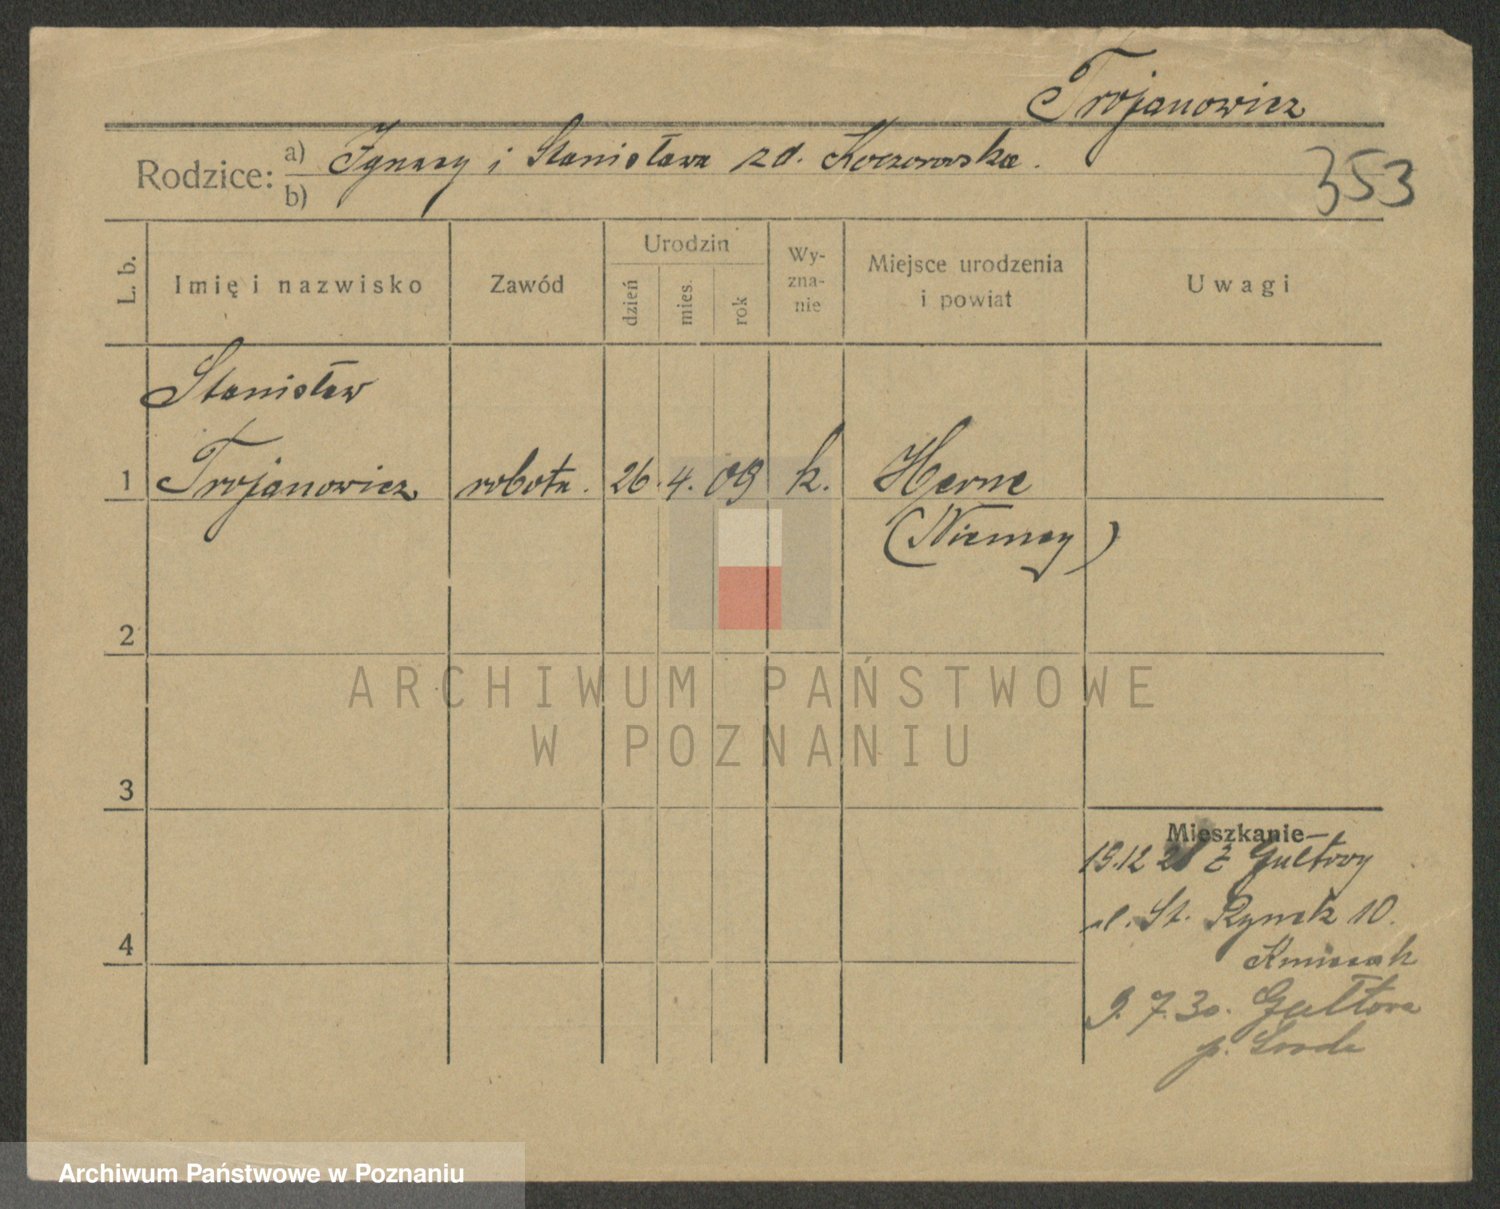 Trojanowicz
Rodzice: a) Ignacy i Stanisława zd. Koczorowska.
b)
353
L. b.
Imię i nazwisko
Zawód
Urodzin
dzień
mies.
rok
Wy-
zna-
nie
Miejsce urodzenia
i powiat
Uwagi
Stanisław
1 Trojanowicz robotn. 26. 4. 09 k. Herne
(Niemcy)
2
3
4
Mieszkanie
19.12 z Gułtowy
St. Rynek 10.
9. 7. 30. Gułtowa
p. Środa
ARCHIWUM PAŃSTWOWE
W POZNANIU
Archiwum Państwowe w Poznaniu